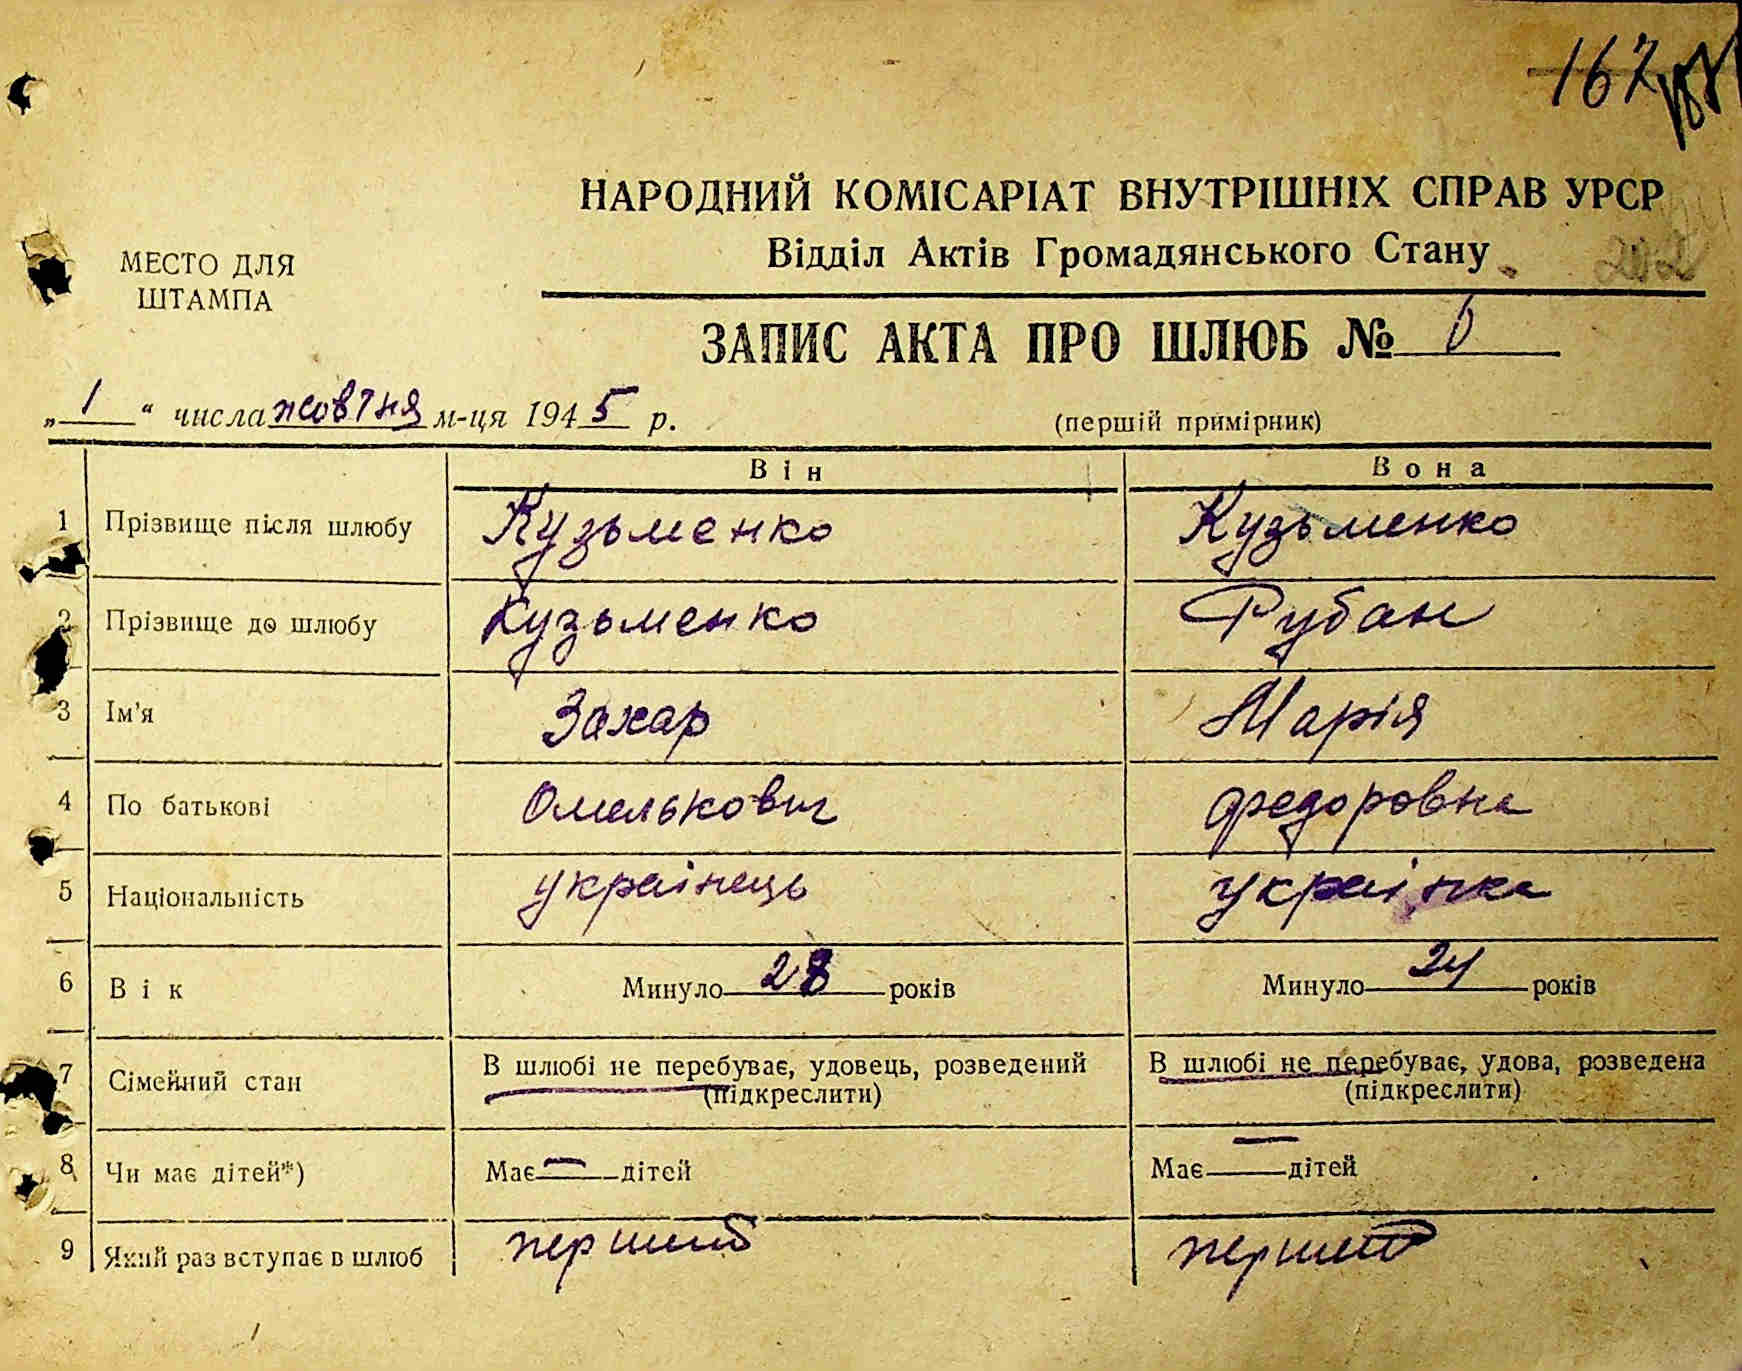 167
НАРОДНИЙ КОМІСАРІАТ ВНУТРІШНІХ СПРАВ УРСР
Відділ Актів Громадянського Стану
МЕСТО ДЛЯ
ШТАМПА
ЗАПИС АКТА ПРО ШЛЮБ № 6
„1“ числа жовтня м-ця 1945 р. (першій примірник)
Він Вона
1 Прізвище після шлюбу Кузьменко Кузьменко
2 Прізвище до шлюбу Кузьменко Рубан
3 Ім'я Захар Марія
4 По батькові Омелькович Федоровна
5 Національність українець українка
6 Вік Минуло 28 років Минуло 24 років
7 Сімейний стан В шлюбі не перебуває, удовець, розведений В шлюбі не перебуває, удова, розведена
(підкреслити) (підкреслити)
8 Чи має дітей*) Має — дітей Має — дітей
9 Який раз вступає в шлюб перший перший